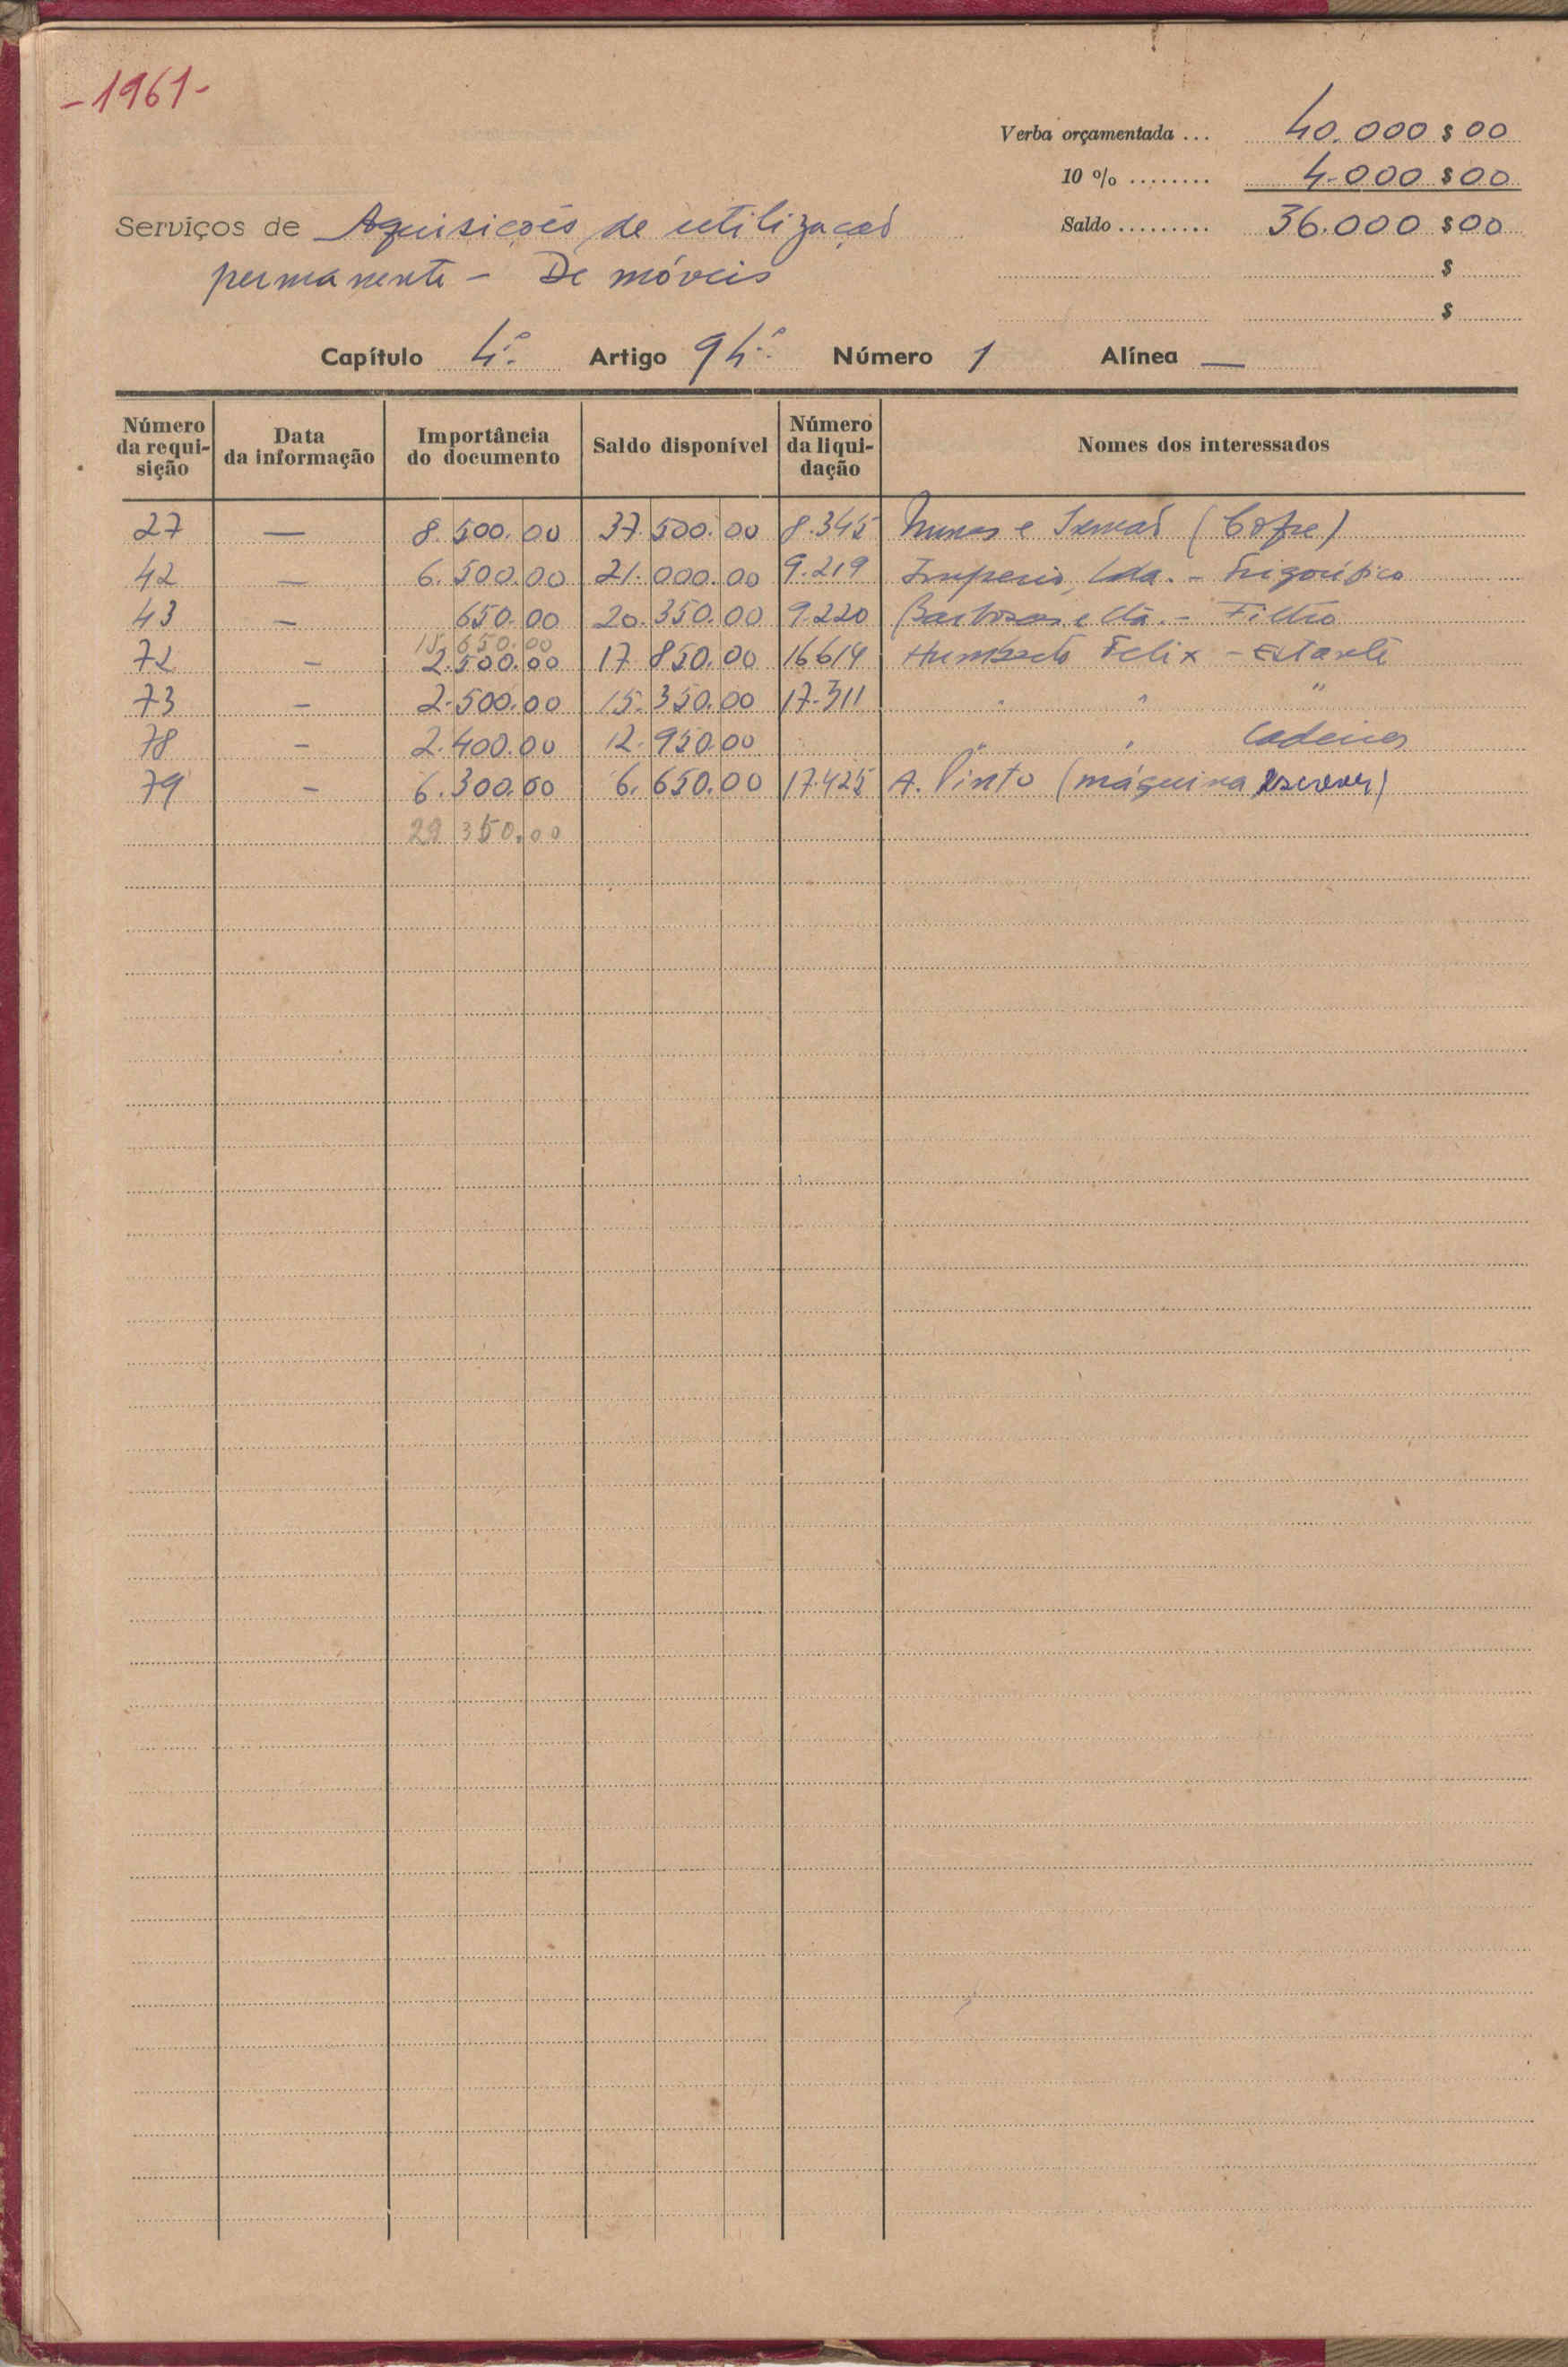 -1961-
Verba orçamentada ... 40.000 $ 00
10 % ........ 4.000 $ 00
Serviços de Aquisições de utilização Saldo ......... 36.000 $ 00
permanente - De móveis $
$
Capítulo 4.º Artigo 94.º Número 1 Alínea —
Número da requisição Data da informação Importância do documento Saldo disponível Número da liquidação Nomes dos interessados
27 — 8.500.00 37.500.00 8.345 Nunes e Irmão (Cofre)
42 — 6.500.00 21.000.00 9.219 Imperio, Lda. - Frigorífico
43 — 650.00 20.350.00 9.220 Barbosa e Cta. - Filtro
15.650.00
72 — 2.500.00 17.850.00 16614 Humberto Felix - Estante
73 — 2.500.00 15.350.00 17.311 " " "
78 — 2.400.00 12.950.00 " " Cadeiras
79 — 6.300.00 6.650.00 17.425 A. Pinto (máquina escrever)
29 350.00